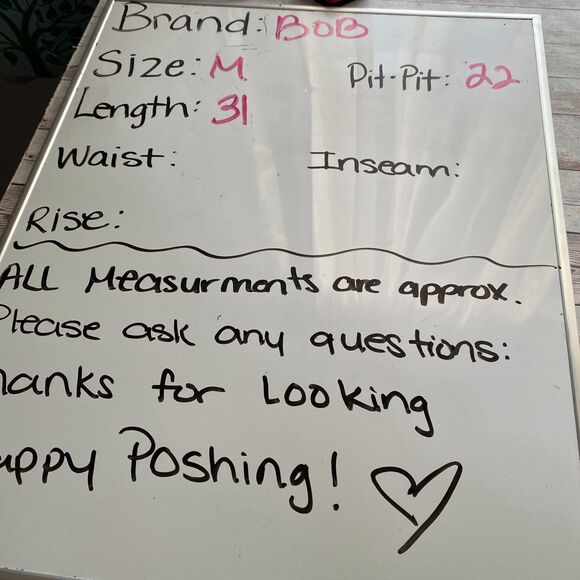 Brand: BOB
Size: M Pit-Pit: 22
Length: 31
Waist: Inseam:
Rise:
ALL Measurments are approx.
Please ask any questions:
hanks for Looking
appy Poshing!